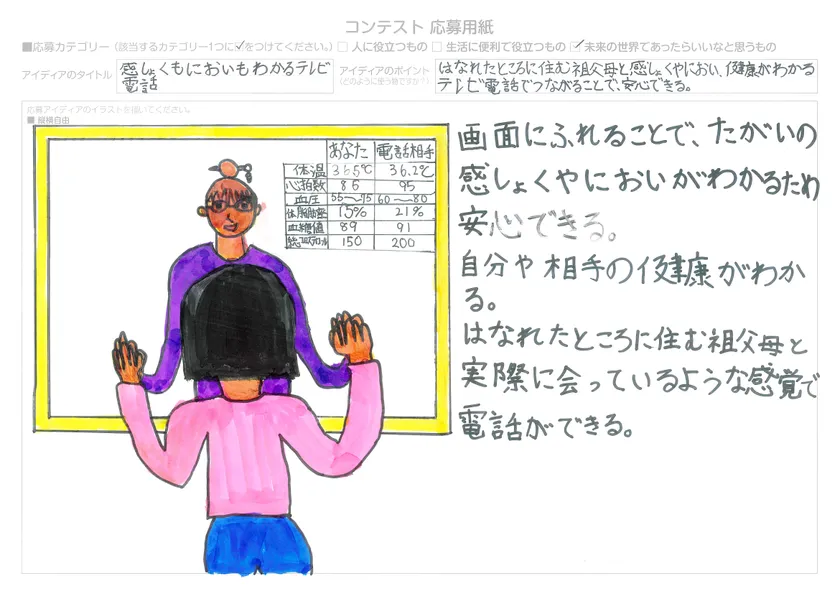 コンテスト 応募用紙
■応募カテゴリー（該当するカテゴリー1つに☑をつけてください。）□ 人に役立つもの □ 生活に便利で役立つもの ☑ 未来の世界であったらいいなと思うもの
アイディアのタイトル
感しょくもにおいもわかるテレビ
電話
アイディアのポイント
（どのように使う物ですか？）
はなれたところに住む祖父母と感しょくやにおい、健康がわかる
テレビ電話でつながることで、安心できる。
応募アイディアのイラストを描いてください。
■ 縦横自由
あなた 電話相手
体温 36.5℃ 36.2℃
心拍数 86 95
血圧 55〜75 60〜80
体脂肪率 15% 21%
血糖値 89 91
150 200
画面にふれることで、たがいの
感しょくやにおいがわかるため
安心できる。
自分や相手の健康がわか
る。
はなれたところに住む祖父母と
実際に会っているような感覚で
電話ができる。